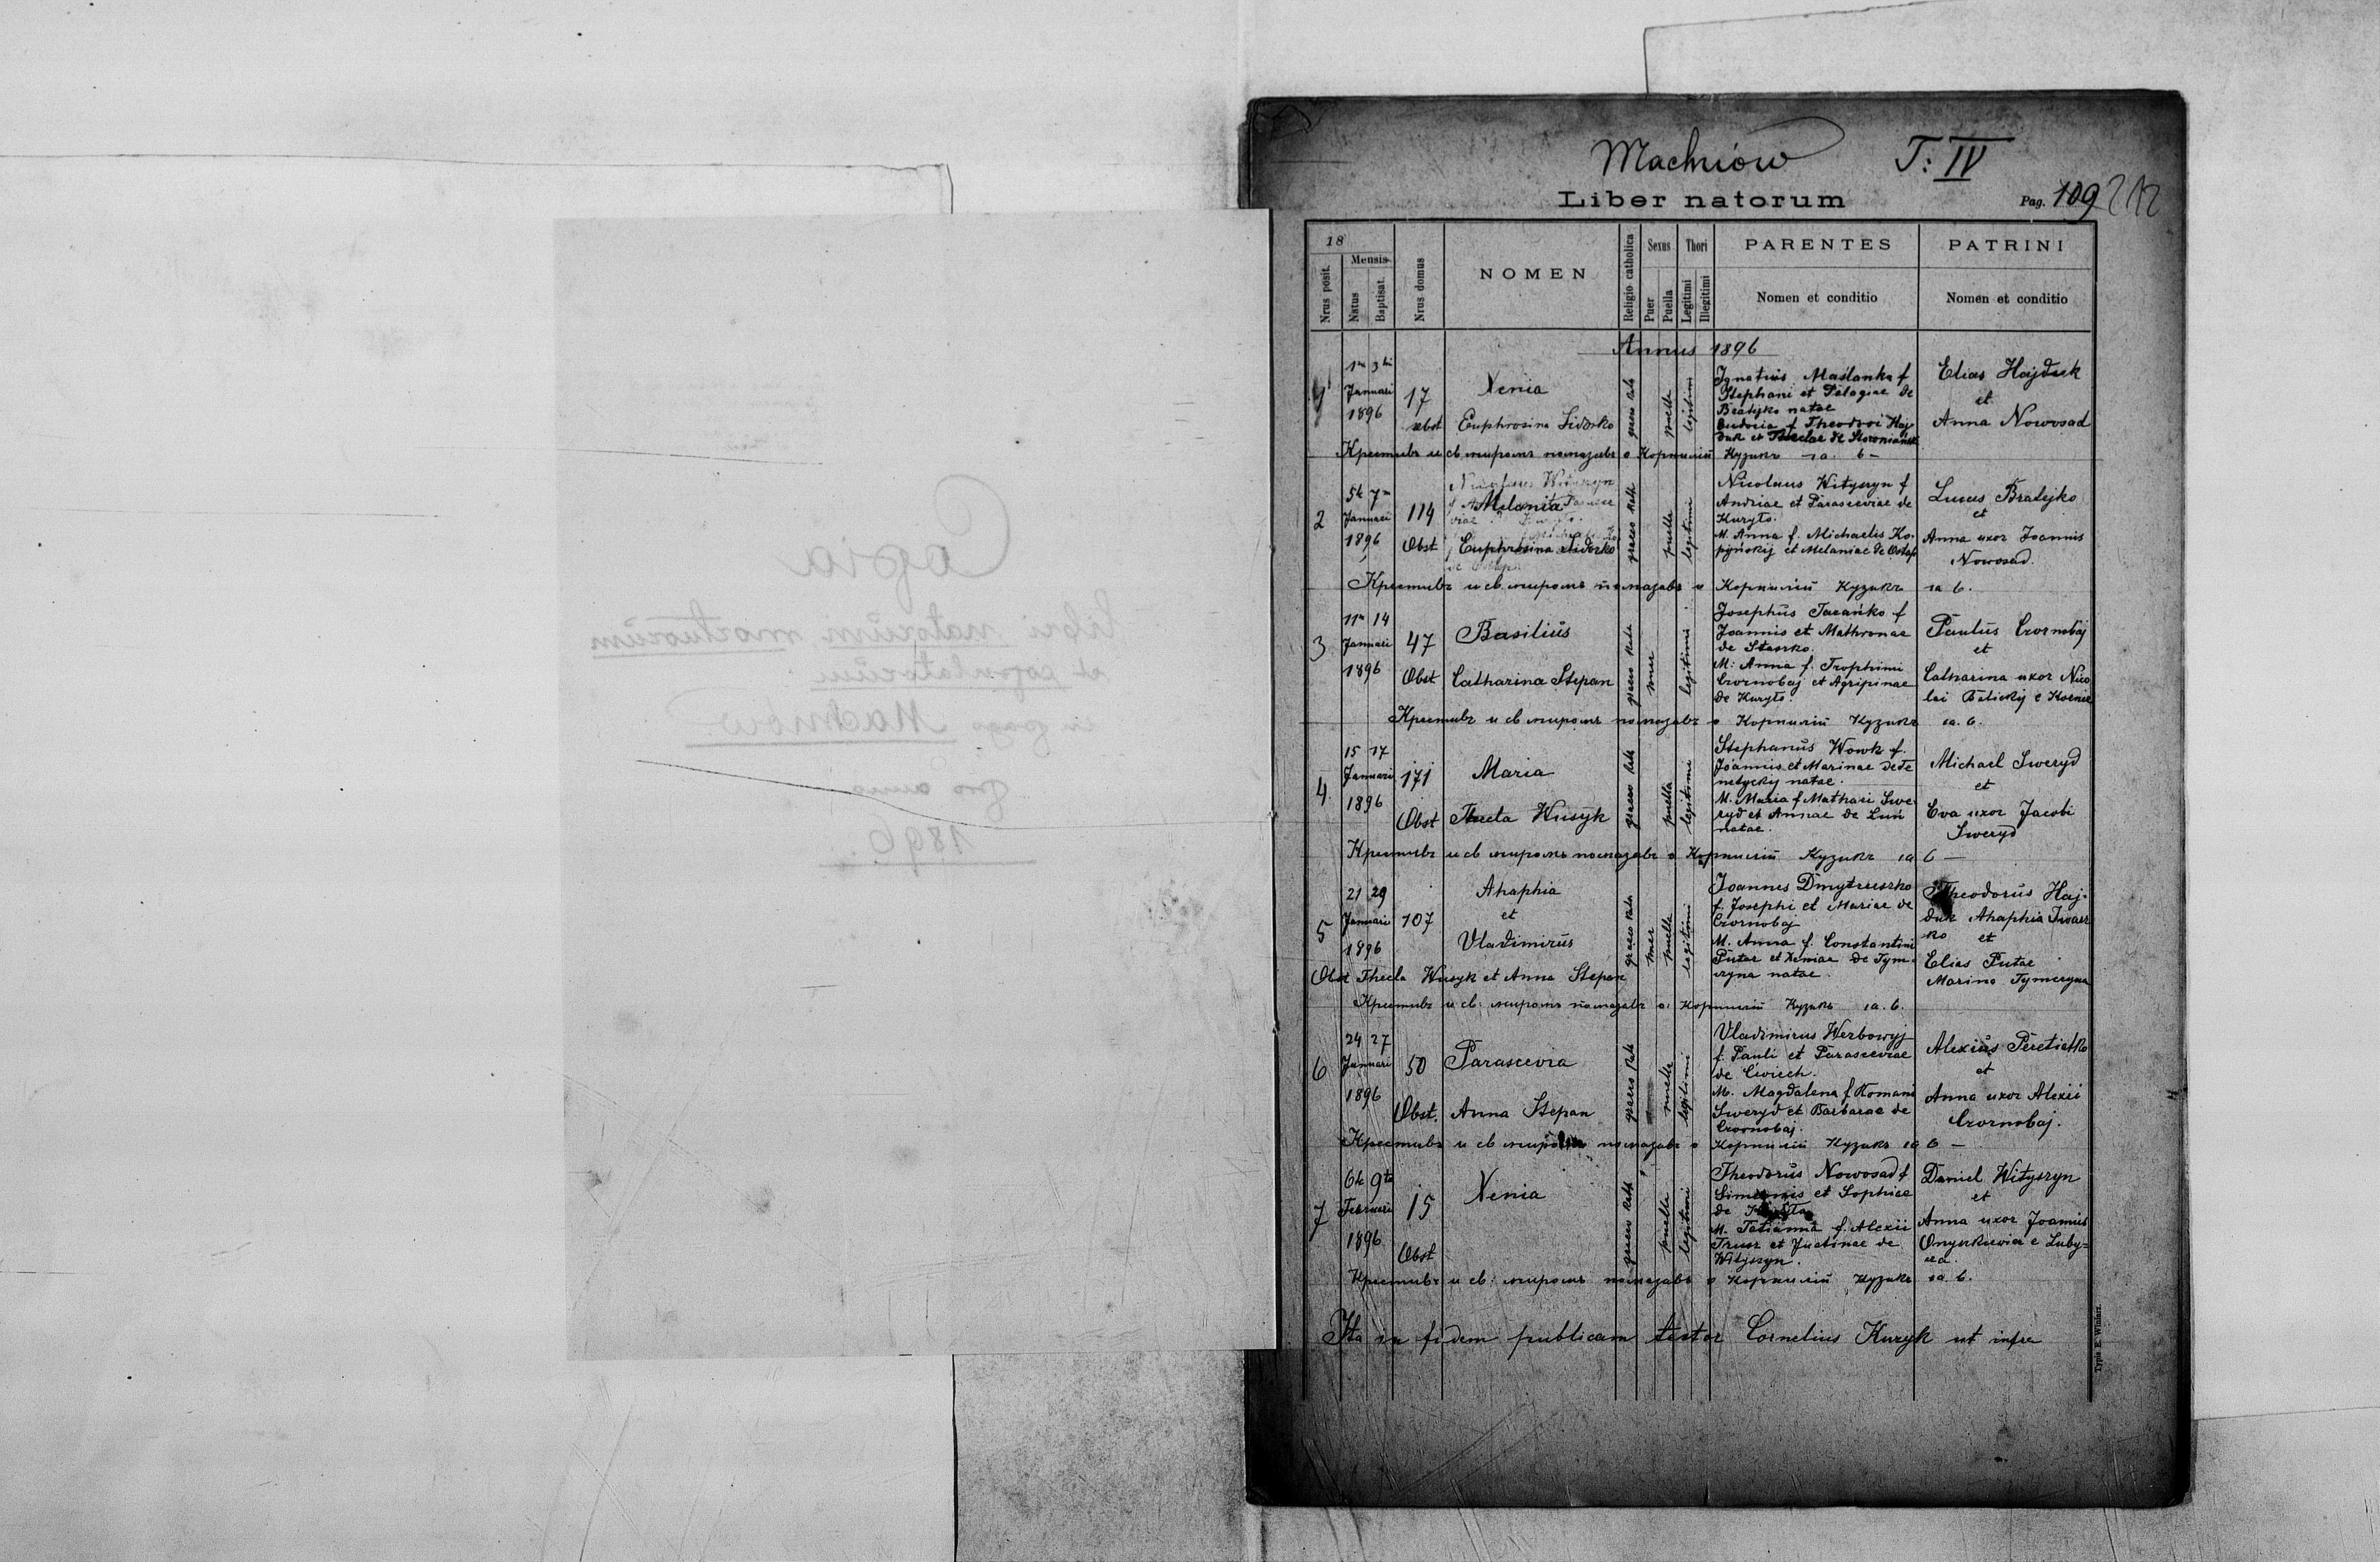 Copia
libri natorum, mortuorum
et copulatorum
in pago Machnow
pro anno
1896.
Machnów T: IV
Liber natorum
Pag. 109 212
18
Mensis
Nrus posit.
Natus
Baptisat.
Nrus domus
NOMEN
Religio catholica
Sexus
Puer
Puella
Thori
Legitimi
Illegitimi
PARENTES
Nomen et conditio
PATRINI
Nomen et conditio
Annus 1896
1
Januari
1896
17
Xenia
obst Euphrosina Sidorko
puella
legitimi
Ignatius Maślanka f
Stephani et Pelagiae de
Bratejko natae
Eudocia f Theodori Haj
duk et Theclae de
Elias Hajduk
et
Anna Nowosad
Крестивъ и св миромъ помазавъ о Корнилій Кузикъ
2
5te 7m
Januari
1896
114
Melania
Obst Euphrosina Sidorko
puella
legitimi
Nicolaus Wityszyn f
Andriae et Parasceviae de
Kuryło.
M. Anna f. Michaelis Ko-
pyńskij et Melaniae de Ostap
Lucas Bratejko
et
Anna uxor Joannis
Nowosad.
Крестивъ и св. миромъ помазавъ о Корнилій Кузикъ
3
11m 14
Januari
1896
47
Basilius
Obst Catharina Stepan
puer
legitimi
Josephus Tacańko f
Joannis et Mathronae
de Staszko.
M: Anna f. Trophimi
Czornobaj et Agripinae
de Kuryło.
Paulus Czornobaj
et
Catharina uxor Nico
lai Bilickij e Kornie
Крестивъ и св миромъ помазавъ о Корнилій Кузикъ
4.
15 17
Januari
1896
171
Maria
Obst Thecla Wusyk
puella
legitimi
Stephanus Wowk f.
Joannis et Marinae de De
netyckij natae.
M. Maria f Mathaei Swe
ryd et Annae de Luń
natae.
Michael Sweryd
et
Eva uxor Jacobi
Sweryd
Крестивъ и св миромъ помазавъ о Корнилій Кузикъ
5
21 29
Januari
1896
107
Ahaphia
et
Vladimirus
Obst Thecla Wusyk et Anna Stepan
puer
puella
legitimi
Joannes Dmytruszko
f. Josephi et Mariae de
Czornobaj
M. Anna f. Constantini
Putae et Xeniae de Tym-
czyna natae.
Theodorus Haj-
duk Ahaphia
et
Elias Putae
Marina Tymczyna
Крестивъ и св: миромъ помазавъ о: Корнилій Кузикъ
6
24 27
Januari
1896
50
Parascevia
Obst. Anna Stepan
puella
legitimi
Vladimirus Werbowyj
f. Pauli et Parasceviae
de Cwiech.
M. Magdalena f Romani
Sweryd et Barbarae de
Czornobaj.
Alexius Peretiatko
et
Anna uxor Alexii
Czornobaj.
Крестивъ и св помазавъ о Корнилій Кузикъ
7
6te 9ta
Februari
1896
15
Xenia
Obst
puella
legitimi
Theodorus Nowosad f
Simeonis et Sophiae
de
M. Tatianna f. Alexii
Trusz et Justinae de
Wityszyn.
Daniel Wityszyn
et
Anna uxor Joannis
Onyszkiewicz e Luby=
cza
Крестивъ и св: миромъ помазавъ о Корнилій Кузикъ
Ita in fidem publicam testor Cornelius Kuzyk ut infra
Typis E. Winiarz.